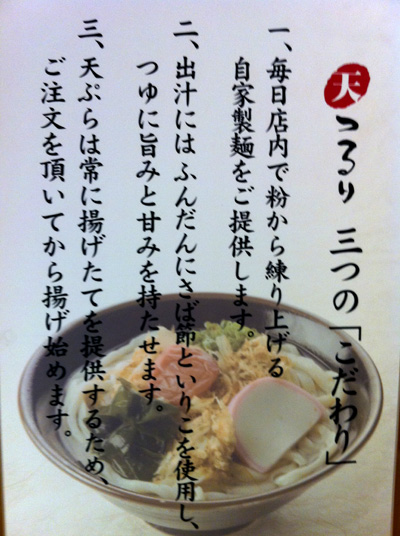 天つるり 三つの「こだわり」
一、毎日店内で粉から練り上げる
自家製麺をご提供します。
二、出汁にはふんだんにさば節といりこを使用し、
つゆに旨みと甘みを持たせます。
三、天ぷらは常に揚げたてを提供するため、
ご注文を頂いてから揚げ始めます。